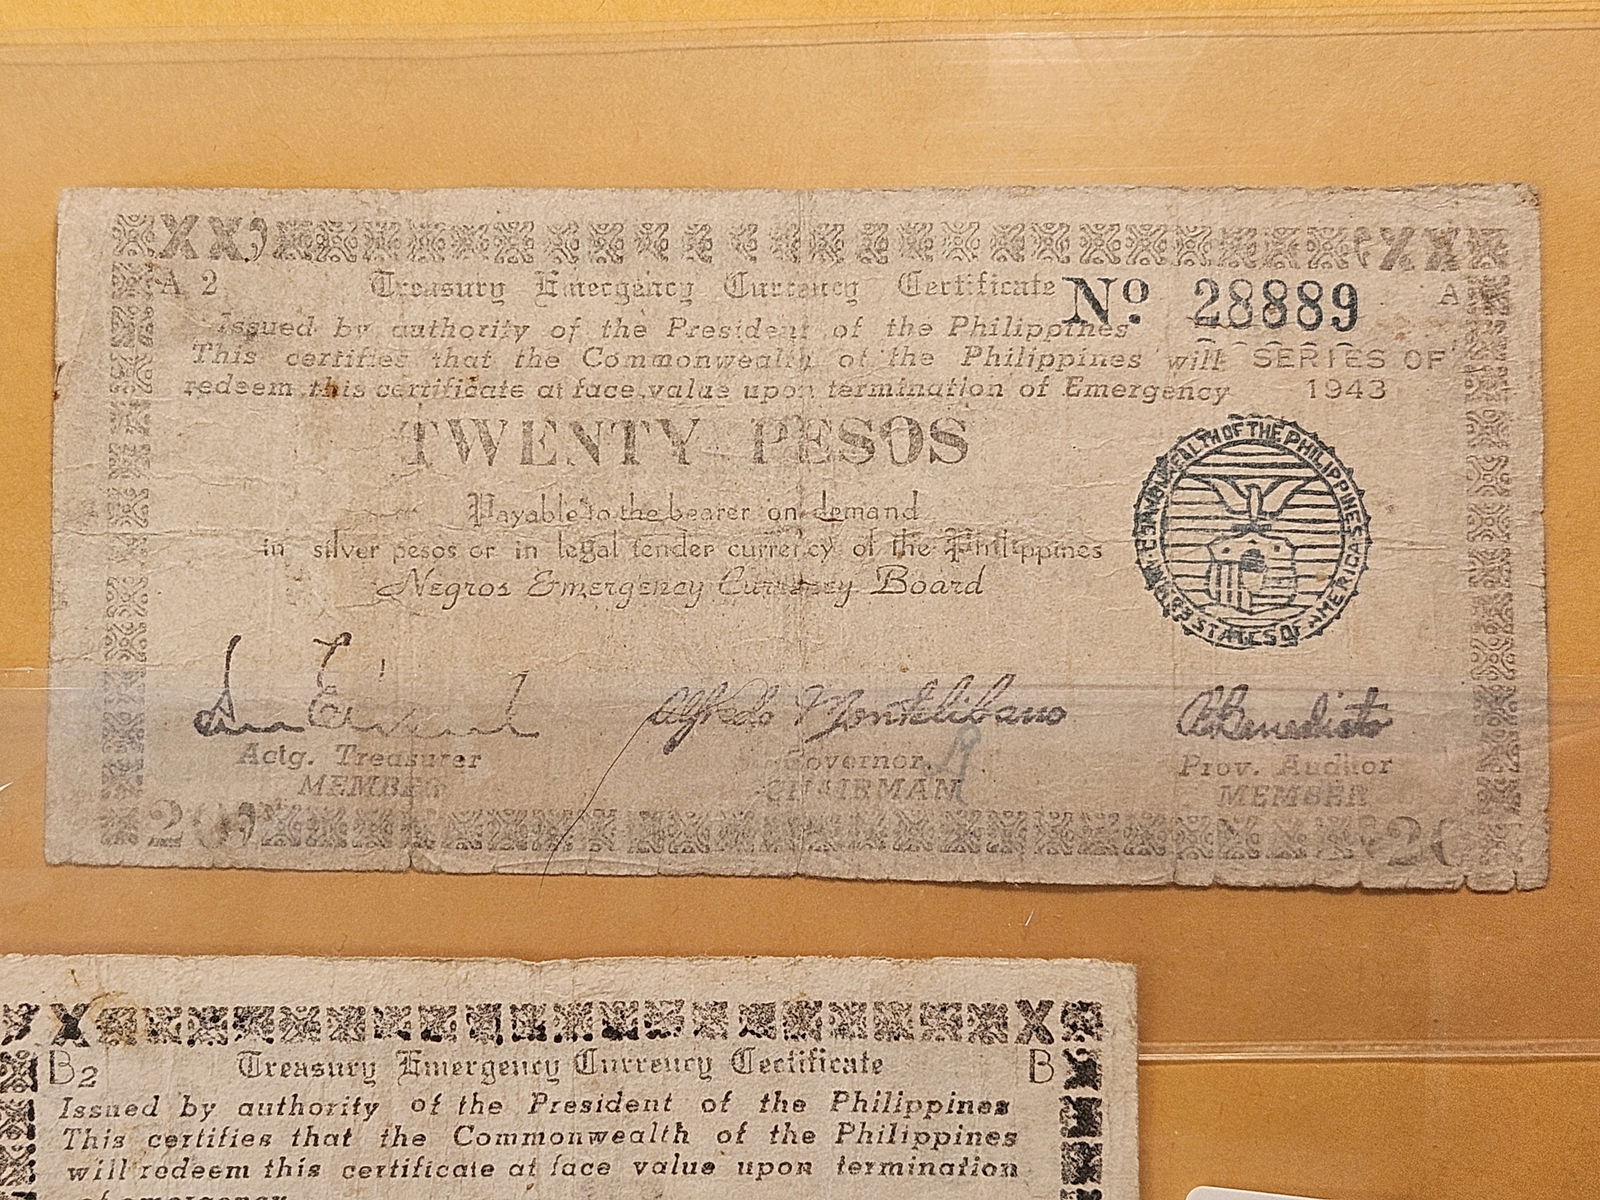 XX XX
A 2 Treasury Emergency Currency Certificate No. 28889 A
Issued by authority of the President of the Philippines
This certifies that the Commonwealth of the Philippines will SERIES OF
redeem this certificate at face value upon termination of Emergency 1943
TWENTY PESOS
COMMONWEALTH OF THE PHILIPPINES
UNITED STATES OF AMERICA
Payable to the bearer on demand
in silver pesos or in legal tender currency of the Philippines
Negros Emergency Currency Board
Alfredo Montelibano
Actg. Treasurer Governor Prov. Auditor
MEMBER CHAIRMAN MEMBER
20 20
X X
B2 Treasury Emergency Currency Certificate B
Issued by authority of the President of the Philippines
This certifies that the Commonwealth of the Philippines
will redeem this certificate at face value upon termination
of emergency